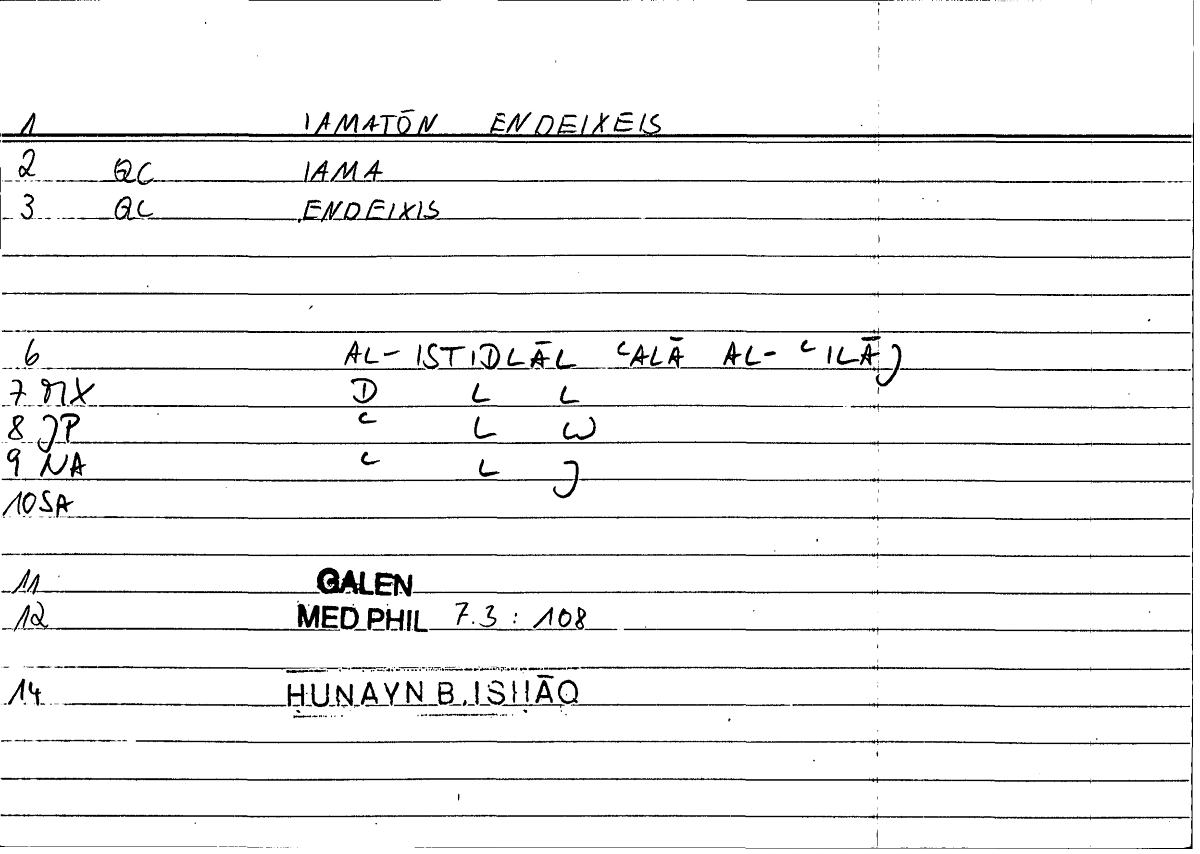 1 IAMATŌN ENDEIXEIS
2 QC IAMA
3 QC ENDEIXIS
6 AL-ISTIDLĀL ʿALĀ AL-ʿILĀJ
7 MX D L L
8 JP ʿ L W
9 NA ʿ L J
10 SA
11 GALEN
12 MED PHIL 7.3 : 108
14 ḤUNAYN B. ISḤĀQ